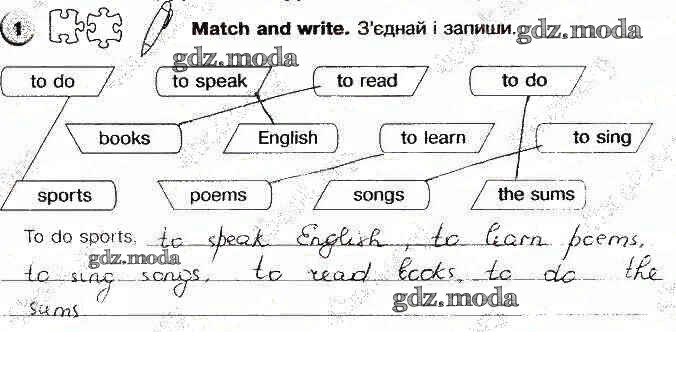 1 Match and write. З'єднай і запиши.
gdz.moda
gdz.moda
to do to speak to read to do
books English to learn to sing
sports poems songs the sums
To do sports, to speak English, to learn poems,
gdz.moda
to sing songs, to read books, to do the
gdz.moda
sums